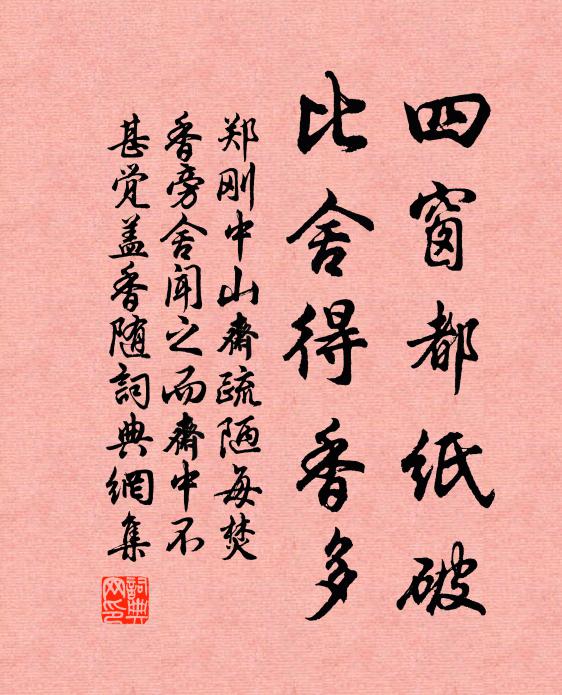 四窗都纸破
比舍得香多
郑刚中山齋疏陋每焚
香旁舍闻之而齋中不
甚觉盖香随詞典網集
詞典网印